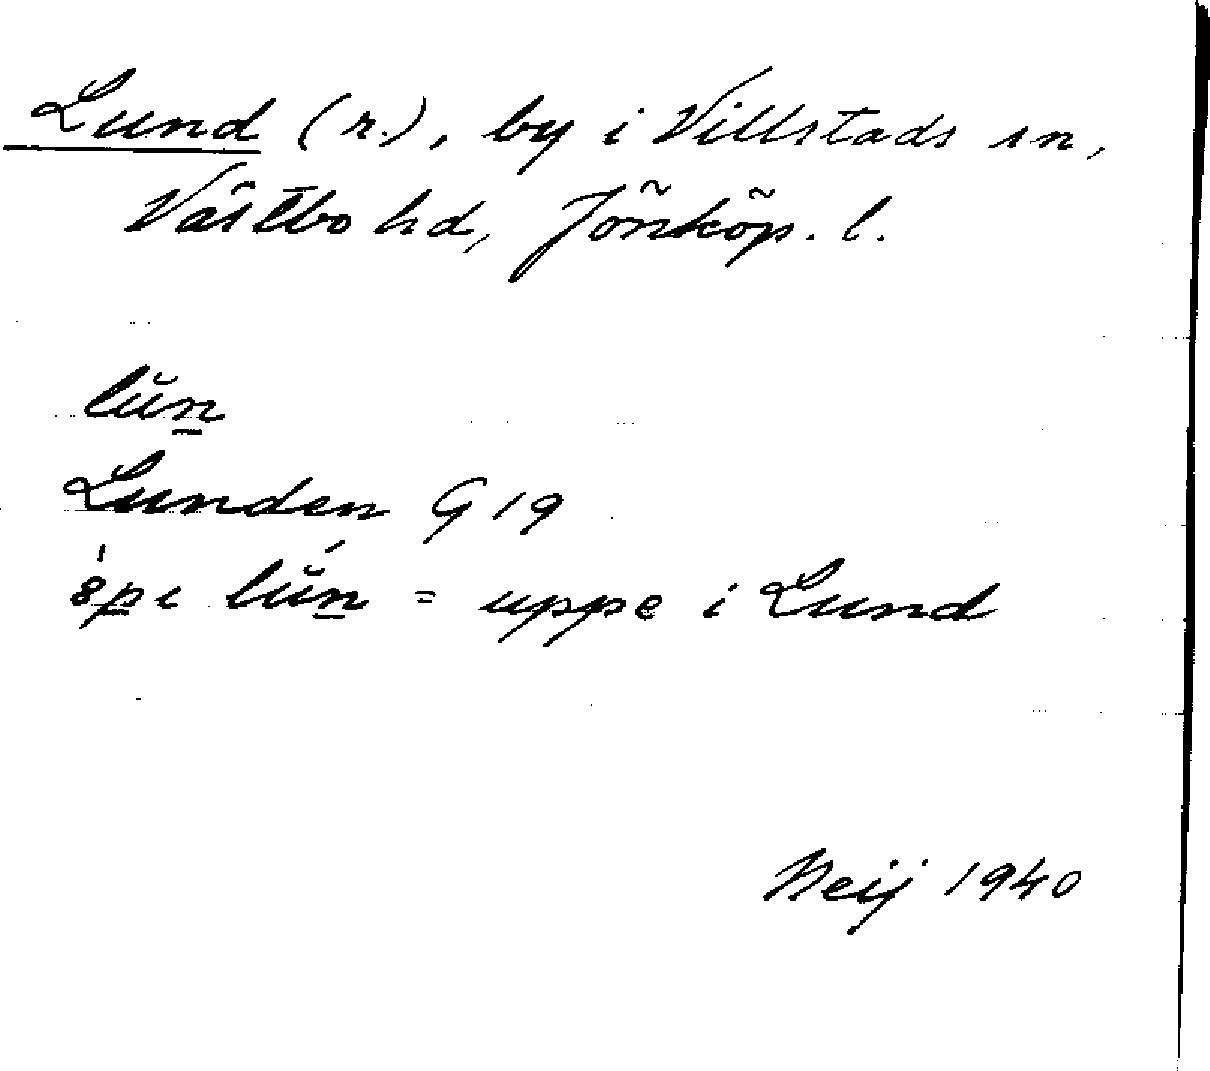 Lund (r.), by i Villstads sn,
Västbo hd, Jönköp. l.
lŭn̲
Lunden G 19
lŭ́n̲ = uppe i Lund
Neij 1940